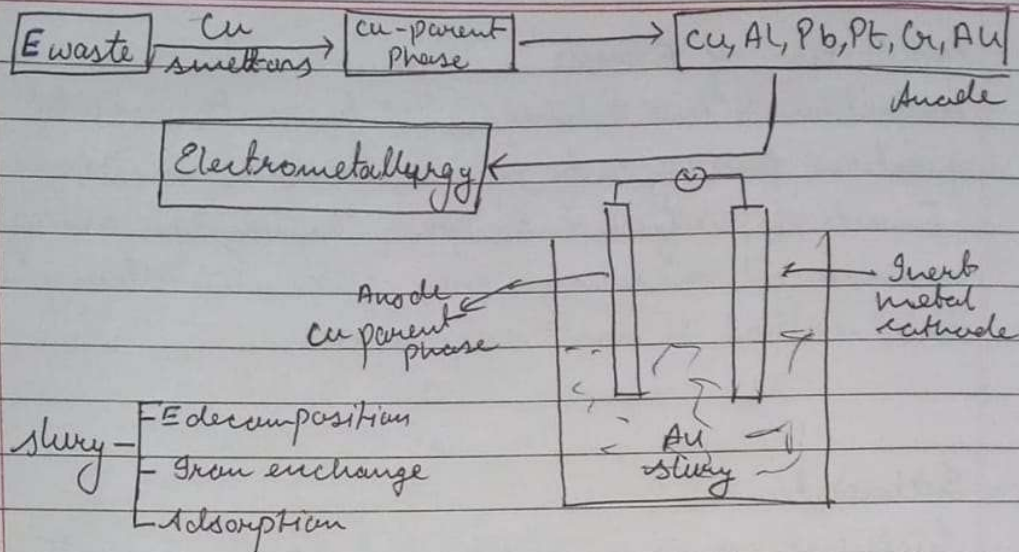 E waste
Cu
smelters
Cu-parent
Phase
Cu, Al, Pb, Pt, Cr, Au
Anode
Electrometallurgy
Anode
Cu parent
phase
Inert
metal
cathode
Au
slury
slury
E decomposition
Iron exchange
Adsorption